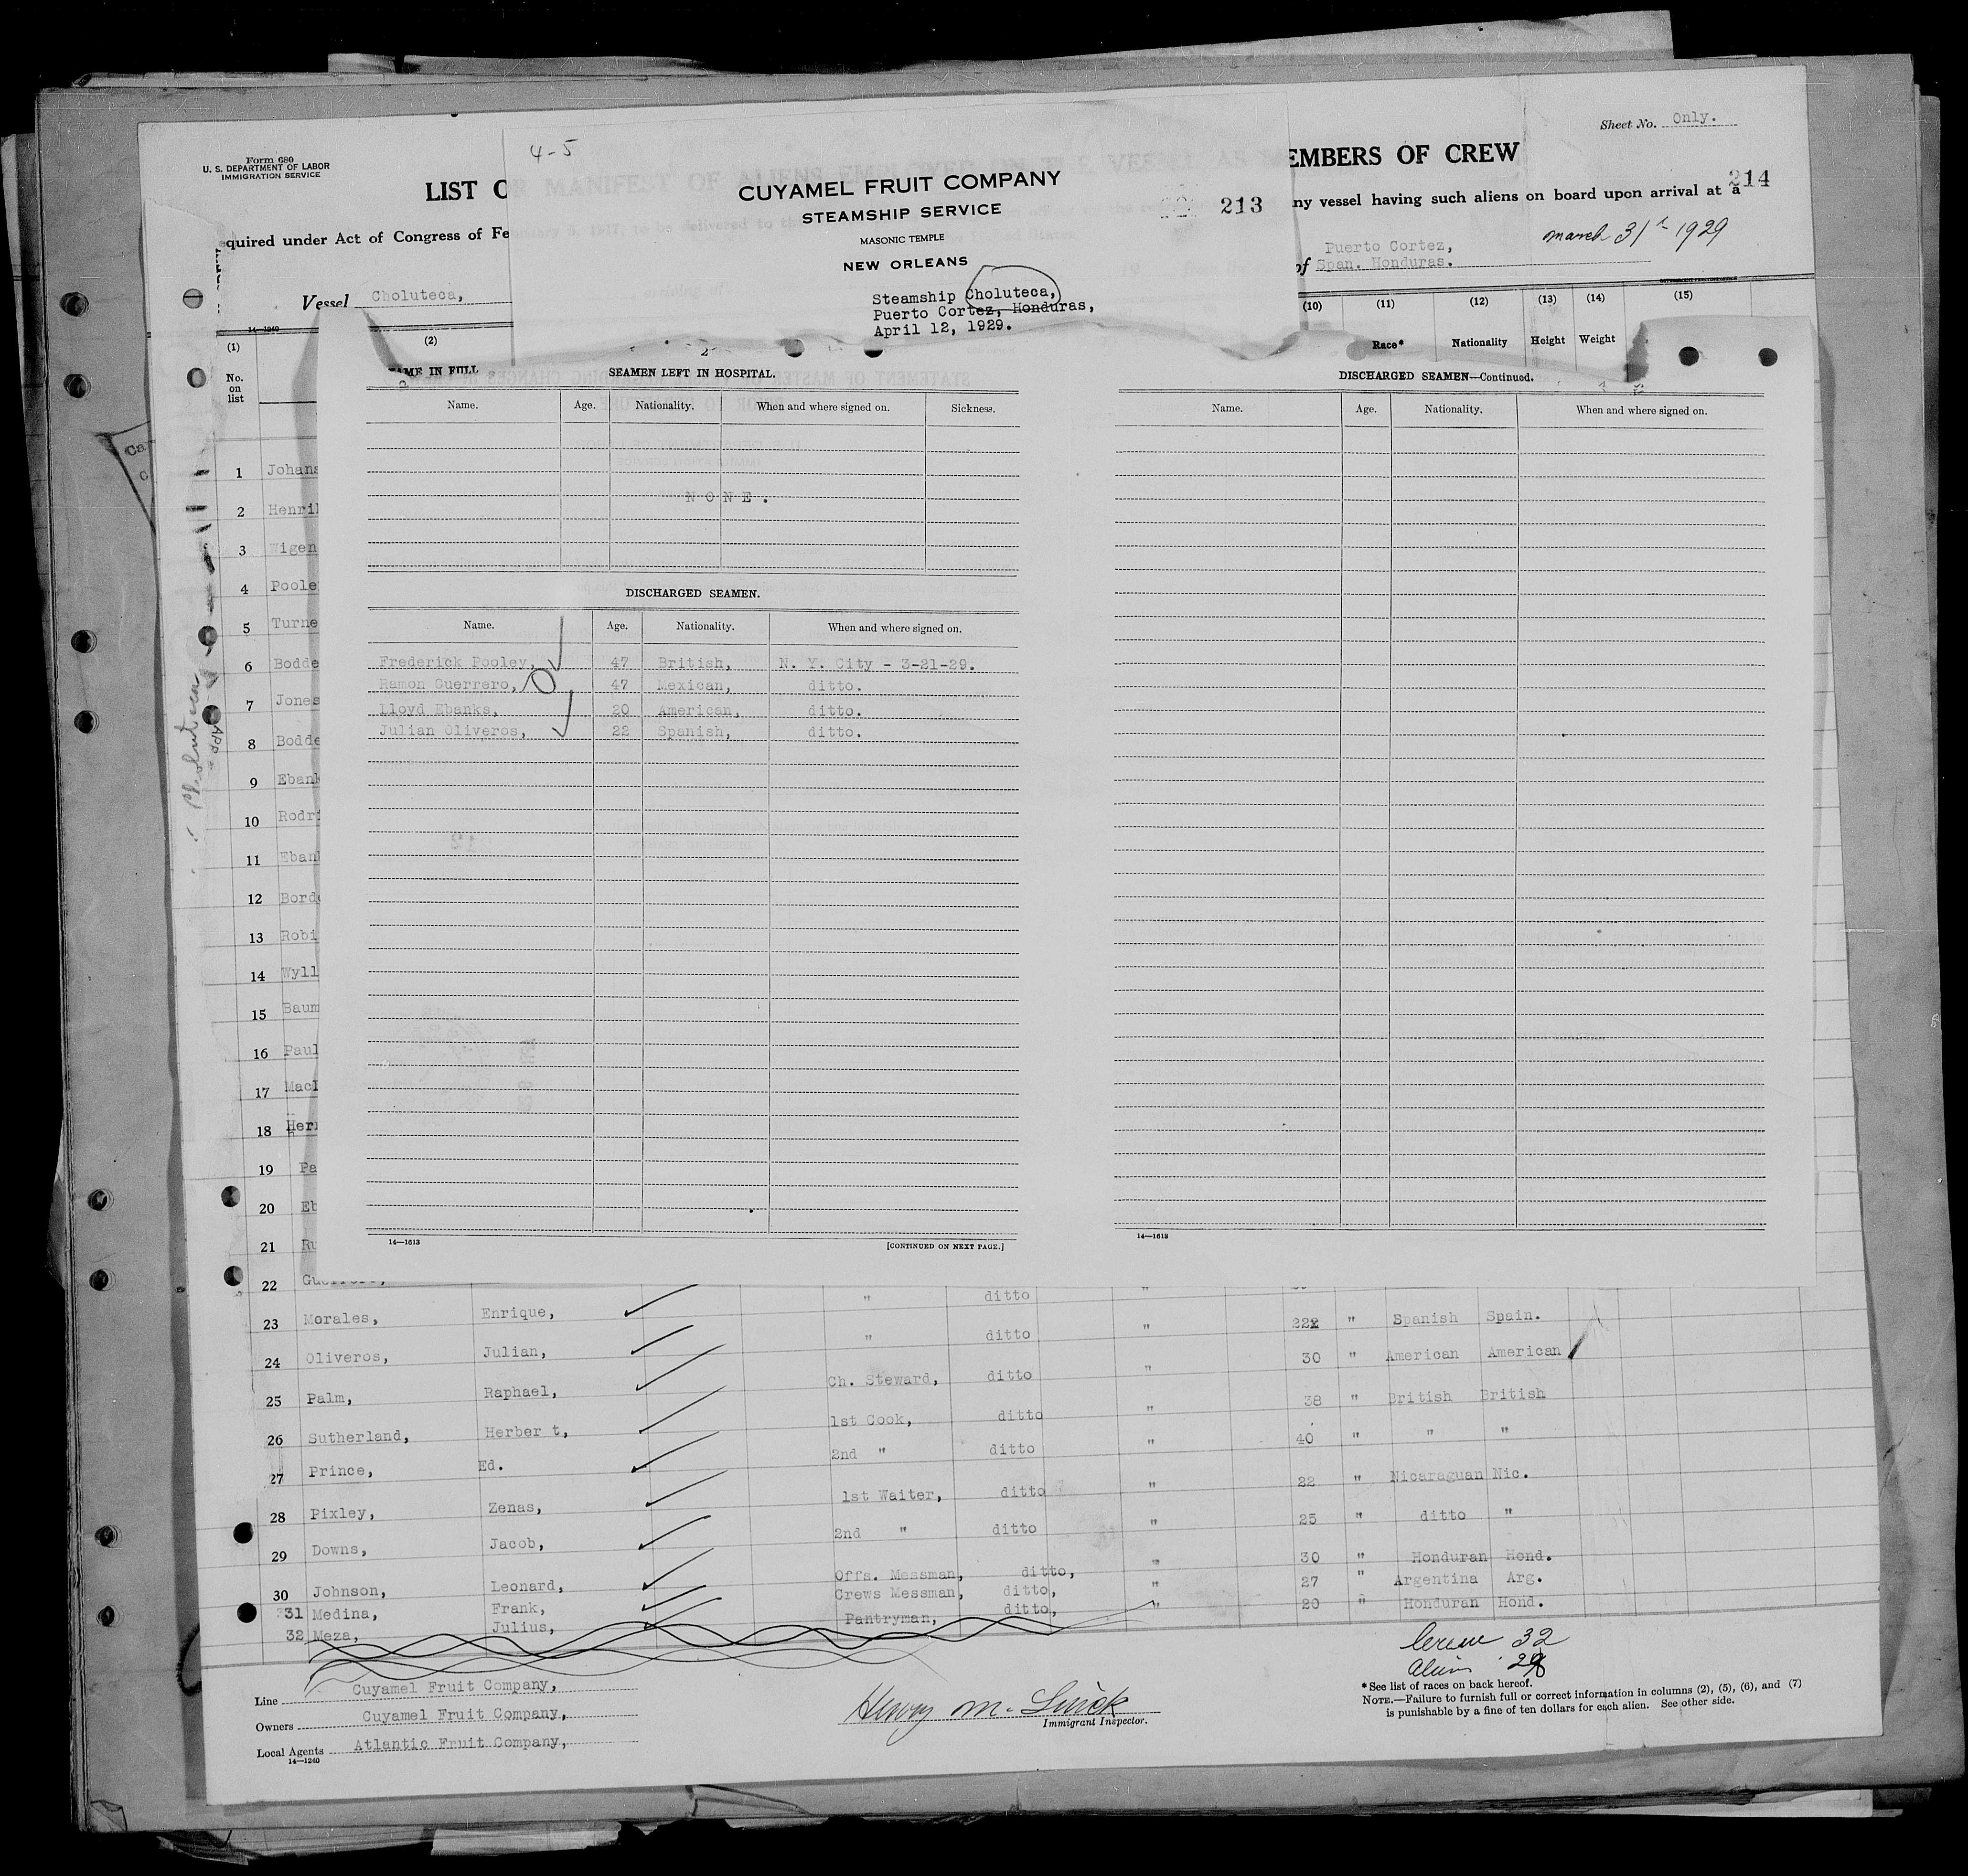 Sheet No. Only.
Form 680
U. S. DEPARTMENT OF LABOR
IMMIGRATION SERVICE
4-5
LIST O
EMBERS OF CREW
214
CUYAMEL FRUIT COMPANY
STEAMSHIP SERVICE
MASONIC TEMPLE
NEW ORLEANS
213
quired under Act of Congress of Fe
ny vessel having such aliens on board upon arrival at a
Puerto Cortez,
of Span. Honduras.
March 31 1929
Vessel Choluteca,
Steamship Choluteca,
Puerto Cortez, Honduras,
April 12, 1929.
14—1240
(1) (2) (10) (11) (12) (13) (14) (15)
No. on list
NAME IN FULL
Race* Nationality Height Weight
SEAMEN LEFT IN HOSPITAL.
Name. Age. Nationality. When and where signed on. Sickness.
NONE.
DISCHARGED SEAMEN.
Name. Age. Nationality. When and where signed on.
Frederick Pooley, 47 British, N. Y. City - 3-21-29.
Ramon Guerrero, 47 Mexican, ditto.
Lloyd Ebanks, 20 American, ditto.
Julian Oliveros, 22 Spanish, ditto.
14—1613
[CONTINUED ON NEXT PAGE.]
DISCHARGED SEAMEN—Continued.
Name. Age. Nationality. When and where signed on.
14—1613
Choluteca
1 Johans
2 Henril
3 Wigen
4 Poole
5 Turne
6 Bodde
7 Jones
8 Bodde
9 Ebank
10 Rodri
11 Eban
12 Bord
13 Robi
14 Wyll
15 Baum
16 Paul
17 Mac
18 Her
19 Pa
20 Eb
21 Ru
22 Guerrero, " ditto "
23 Morales, Enrique, " ditto " 22 " Spanish Spain.
24 Oliveros, Julian, 30 " American American
25 Palm, Raphael, Ch. Steward, ditto " 38 " British British
26 Sutherland, Herber t, 1st Cook, ditto " 40 " " "
27 Prince, Ed. 2nd " ditto " 22 " Nicaraguan Nic.
28 Pixley, Zenas, 1st Waiter, ditto " 25 " ditto "
29 Downs, Jacob, 2nd " ditto " 30 " Honduran Hond.
30 Johnson, Leonard, Offs. Messman, ditto, " 27 " Argentina Arg.
31 Medina, Frank, Crews Messman, ditto, " 20 " Honduran Hond.
32 Meza, Julius, Pantryman, ditto, "
Crew 32
Aliens
Line Cuyamel Fruit Company,
Owners Cuyamel Fruit Company,
Local Agents Atlantic Fruit Company,
14—1240
Henry M.
Immigrant Inspector.
*See list of races on back hereof.
NOTE.—Failure to furnish full or correct information in columns (2), (5), (6), and (7)
is punishable by a fine of ten dollars for each alien. See other side.